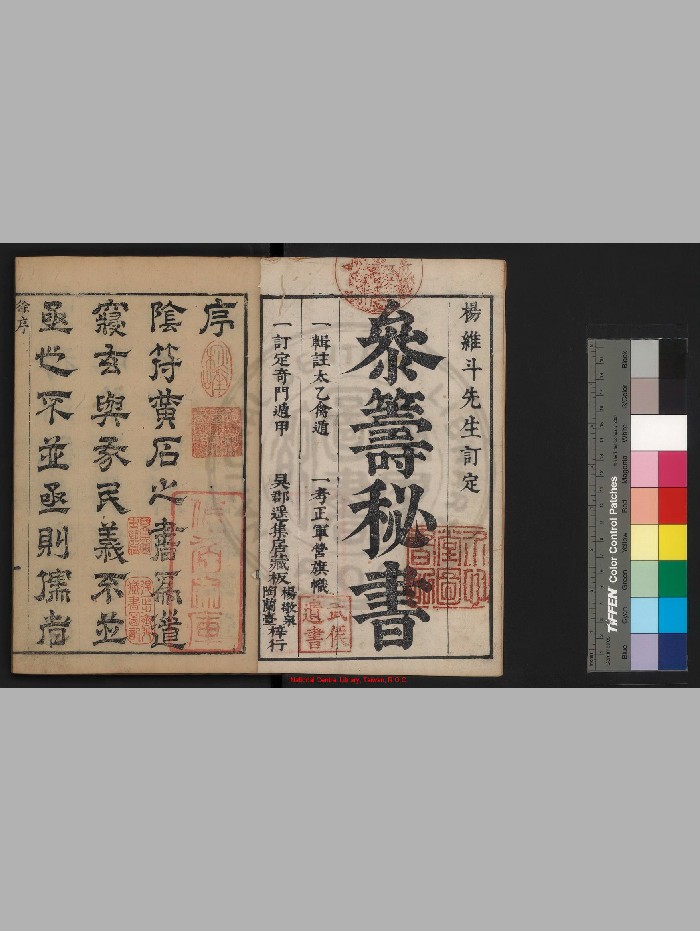 楊維斗先生訂定
參籌秘書
一輯註太乙禽遁 一考正軍營旗幟
一訂定奇門遁甲 吳郡遥集居藏板 楊敬泉 陶蘭臺 梓行
武儀遺書
序
陰符黄石之書爲道
寢玄與豕民義不並
亟也不並亟則儒者
徐序
National Central Library, Taiwan, R.O.C.
TIFFEN Color Control Patches
Blue
Cyan
Green
Yellow
Red
Magenta
White
3/Color
Black